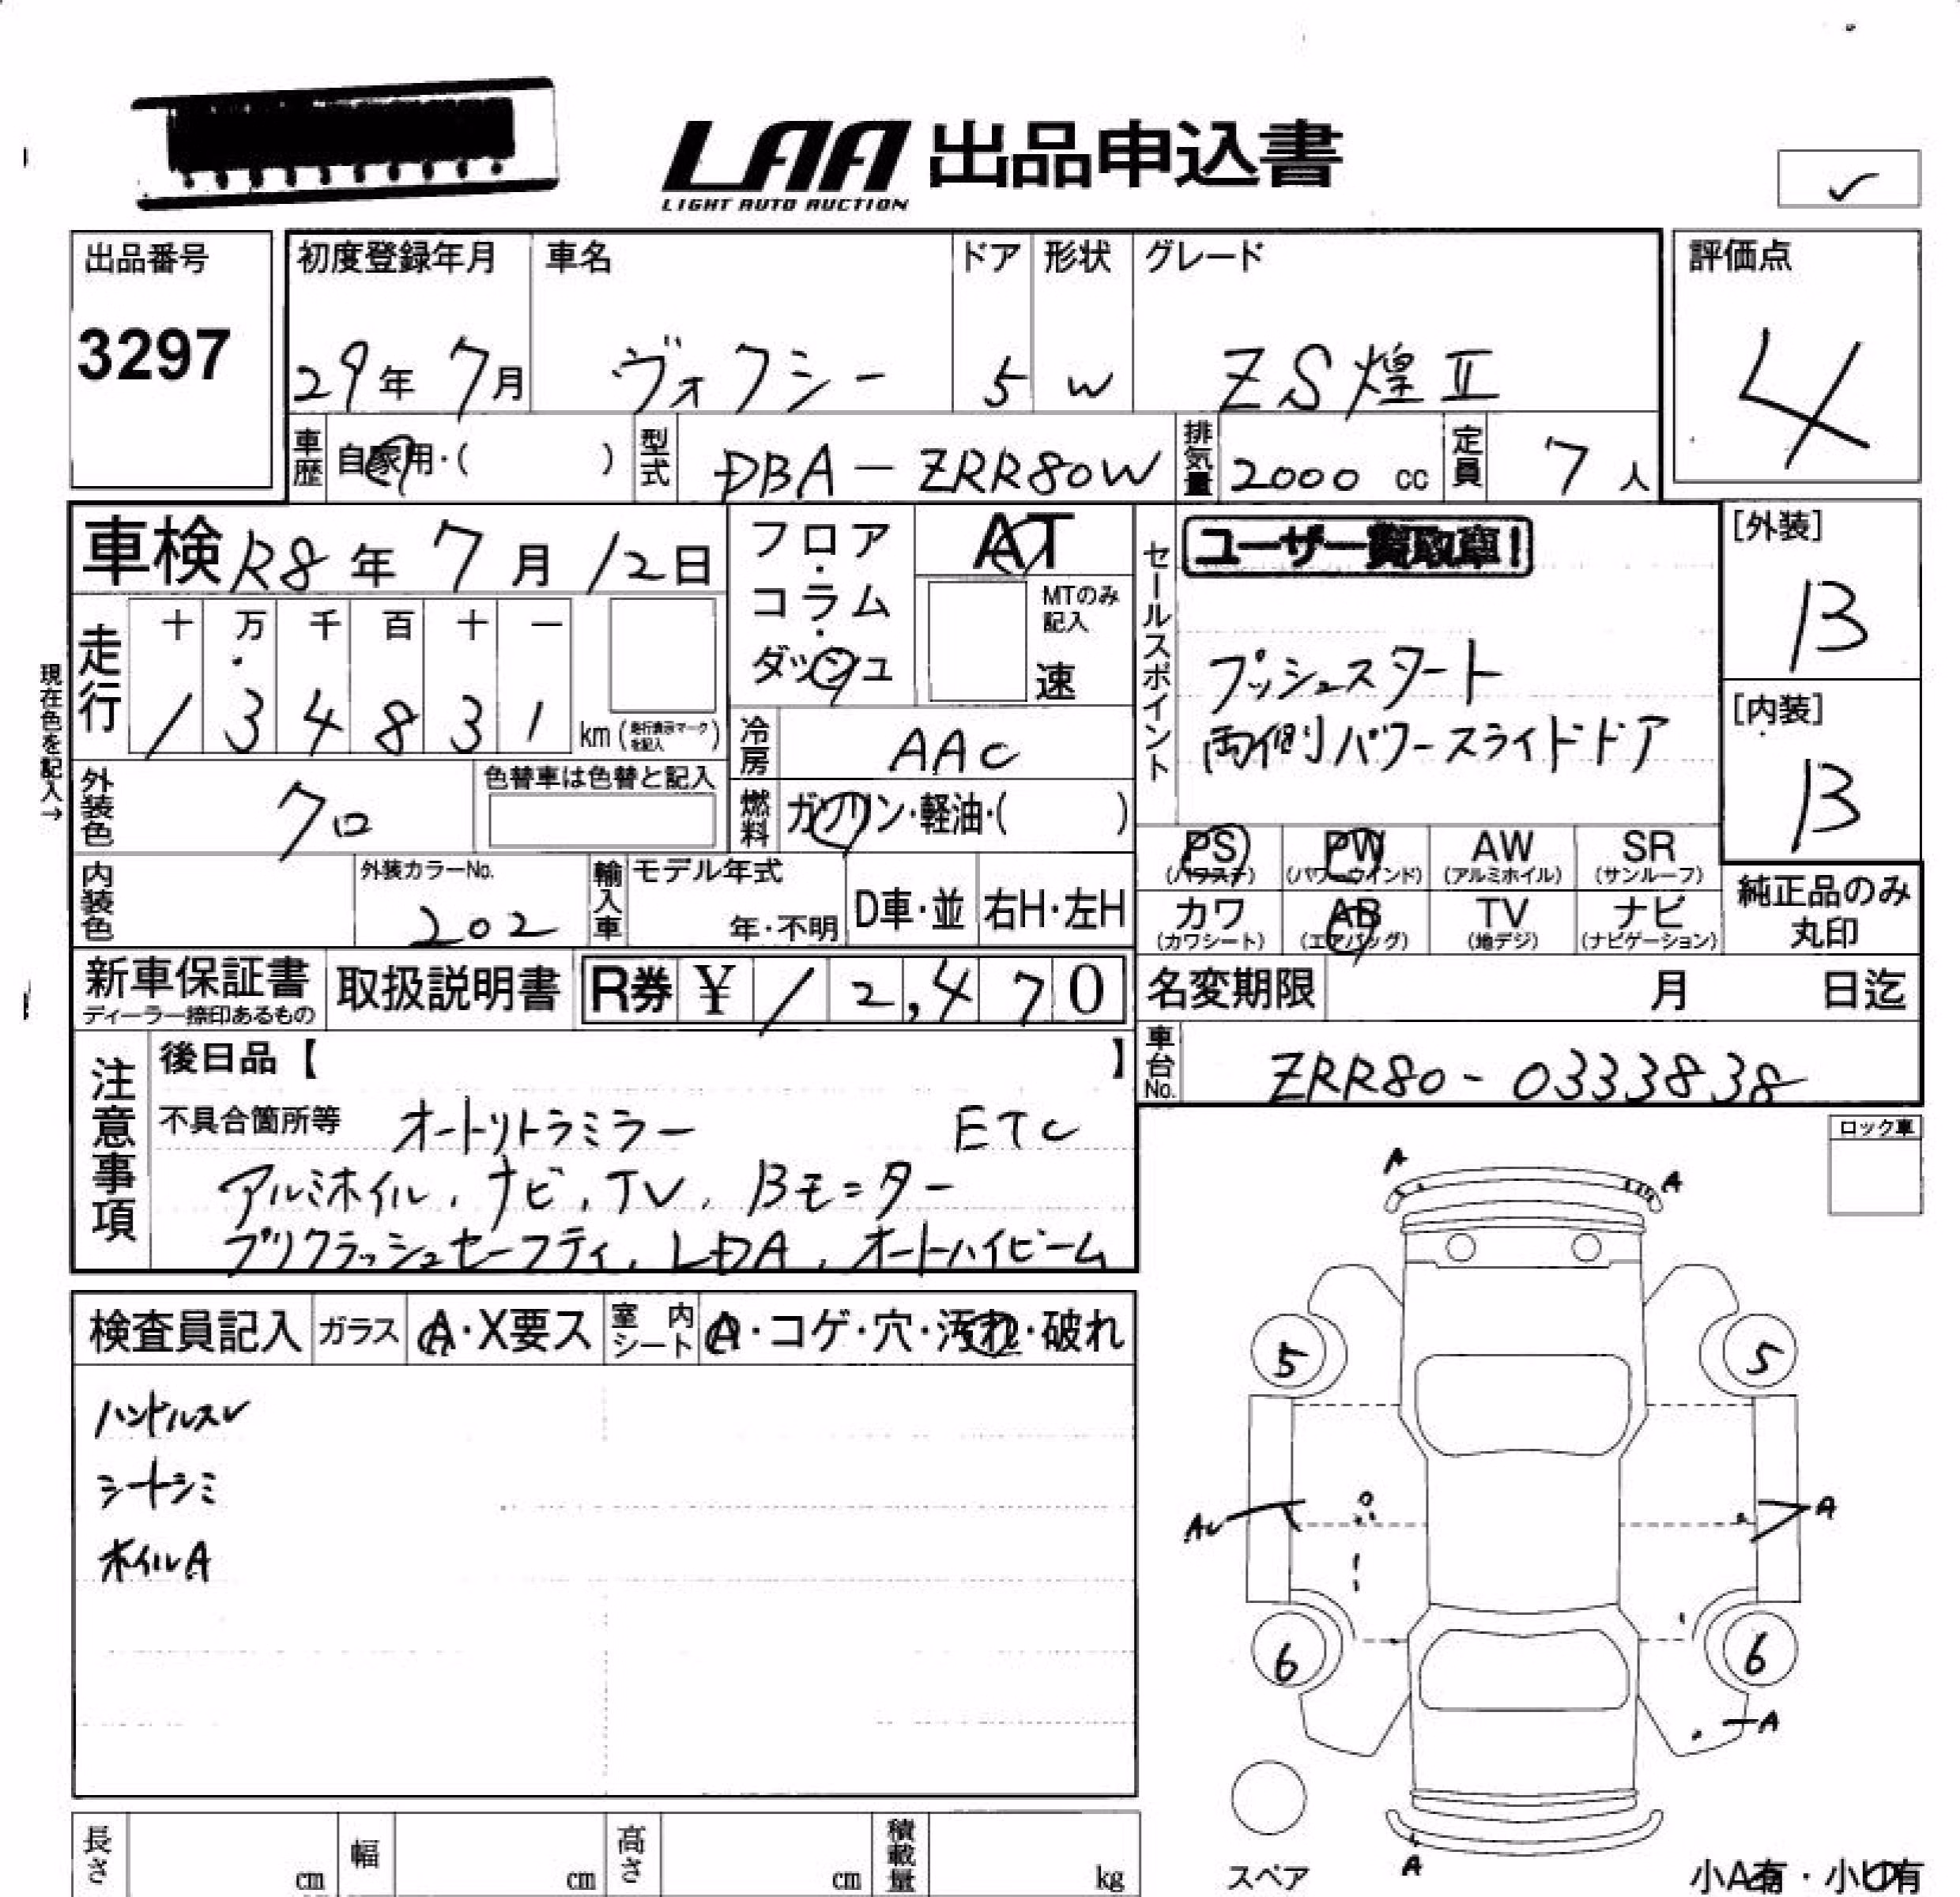 LAA 出品申込書
LIGHT AUTO AUCTION
✓
出品番号
3297
初度登録年月
29年 7月
車名
ヴォクシー
ドア
5
形状
W
グレード
ZS煌Ⅱ
評価点
4
車歴
自家用・( )
型式
DBA-ZRR80W
排気量
2000 cc
定員
7 人
車検 R8年 7月 12日
フロア・コラム・ダッシュ
AT
MTのみ記入
速
セールスポイント
ユーザー買取車!
プッシュスタート
両側パワースライドドア
[外装]
B
[内装]
B
現在色を記入→
走行
十 万 千 百 十 一
1 3 4 8 3 1 km (走行表示マークを記入)
冷房
AAC
外装色
クロ
色替車は色替と記入
燃料
ガソリン・軽油・( )
内装色
外装カラーNo.
202
輸入車
モデル年式
年・不明
D車・並
右H・左H
PS (パワステ)
PW (パワーウインド)
AW (アルミホイル)
SR (サンルーフ)
カワ (カワシート)
AB (エアバッグ)
TV (地デジ)
ナビ (ナビゲーション)
純正品のみ丸印
新車保証書
ディーラー捺印あるもの
取扱説明書
R券 ¥ 12,470
名変期限 月 日迄
車台No.
ZRR80-0333838
注意事項
後日品【 】
不具合箇所等 オートリトラミラー ETC
アルミホイル, ナビ, TV, Bモニター
プリクラッシュセーフティ, LDA, オートハイビーム
ロック車
検査員記入
ガラス
A・X要ス
室内シート
A・コゲ・穴・汚れ・破れ
ハンドルスレ
シートシミ
ホイルA
A
A
5
5
A
A
6
6
A
A
スペア
小A有・小U有
長さ cm
幅 cm
高さ cm
積載量 kg